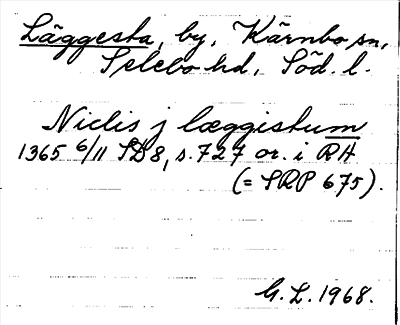 Läggesta, by, Kärnbo sn,
Selebo hd, Söd. l.
Niclis j læggistum
1365 6/11 SD8, s. 727 or. i RA
(= SRP 675).
G. L. 1968.